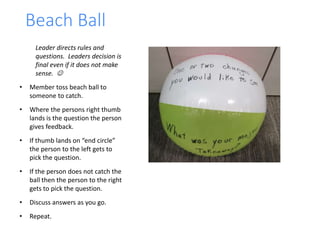 Beach Ball
Leader directs rules and
questions. Leaders decision is
final even if it does not make
sense. ☺
• Member toss beach ball to
someone to catch.
• Where the persons right thumb
lands is the question the person
gives feedback.
• If thumb lands on “end circle”
the person to the left gets to
pick the question.
• If the person does not catch the
ball then the person to the right
gets to pick the question.
• Discuss answers as you go.
• Repeat.
One or two changes
you would like to see
What was your
Takeaway